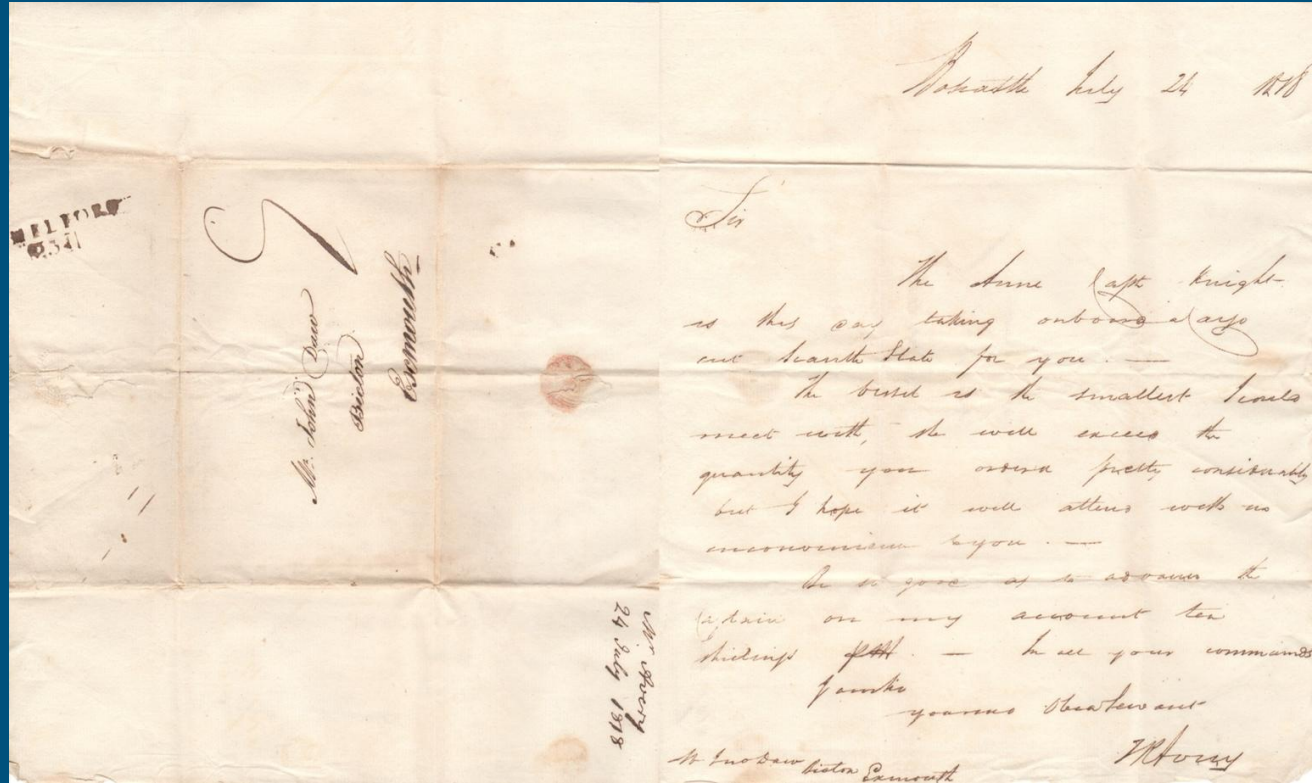 MELFORD
231
7
Mr. John Daw
Bicton
Exmouth
Mr. Avery
24 July 1818
Boscastle July 24 1818
Sir
The Anne Capt Knight
is this day taking onboard a Cargo
out Scantle Slate for you. —
The vessel is the smallest I could
meet with, she will exceed the
quantity you ordered pretty considerably
but I hope it will attend with no
inconvenience to you. —
Be so good as to advance the
Captain on my account ten
shillings — In all your commands
your Servant
Avery
Mr Jno Daw Bicton Exmouth